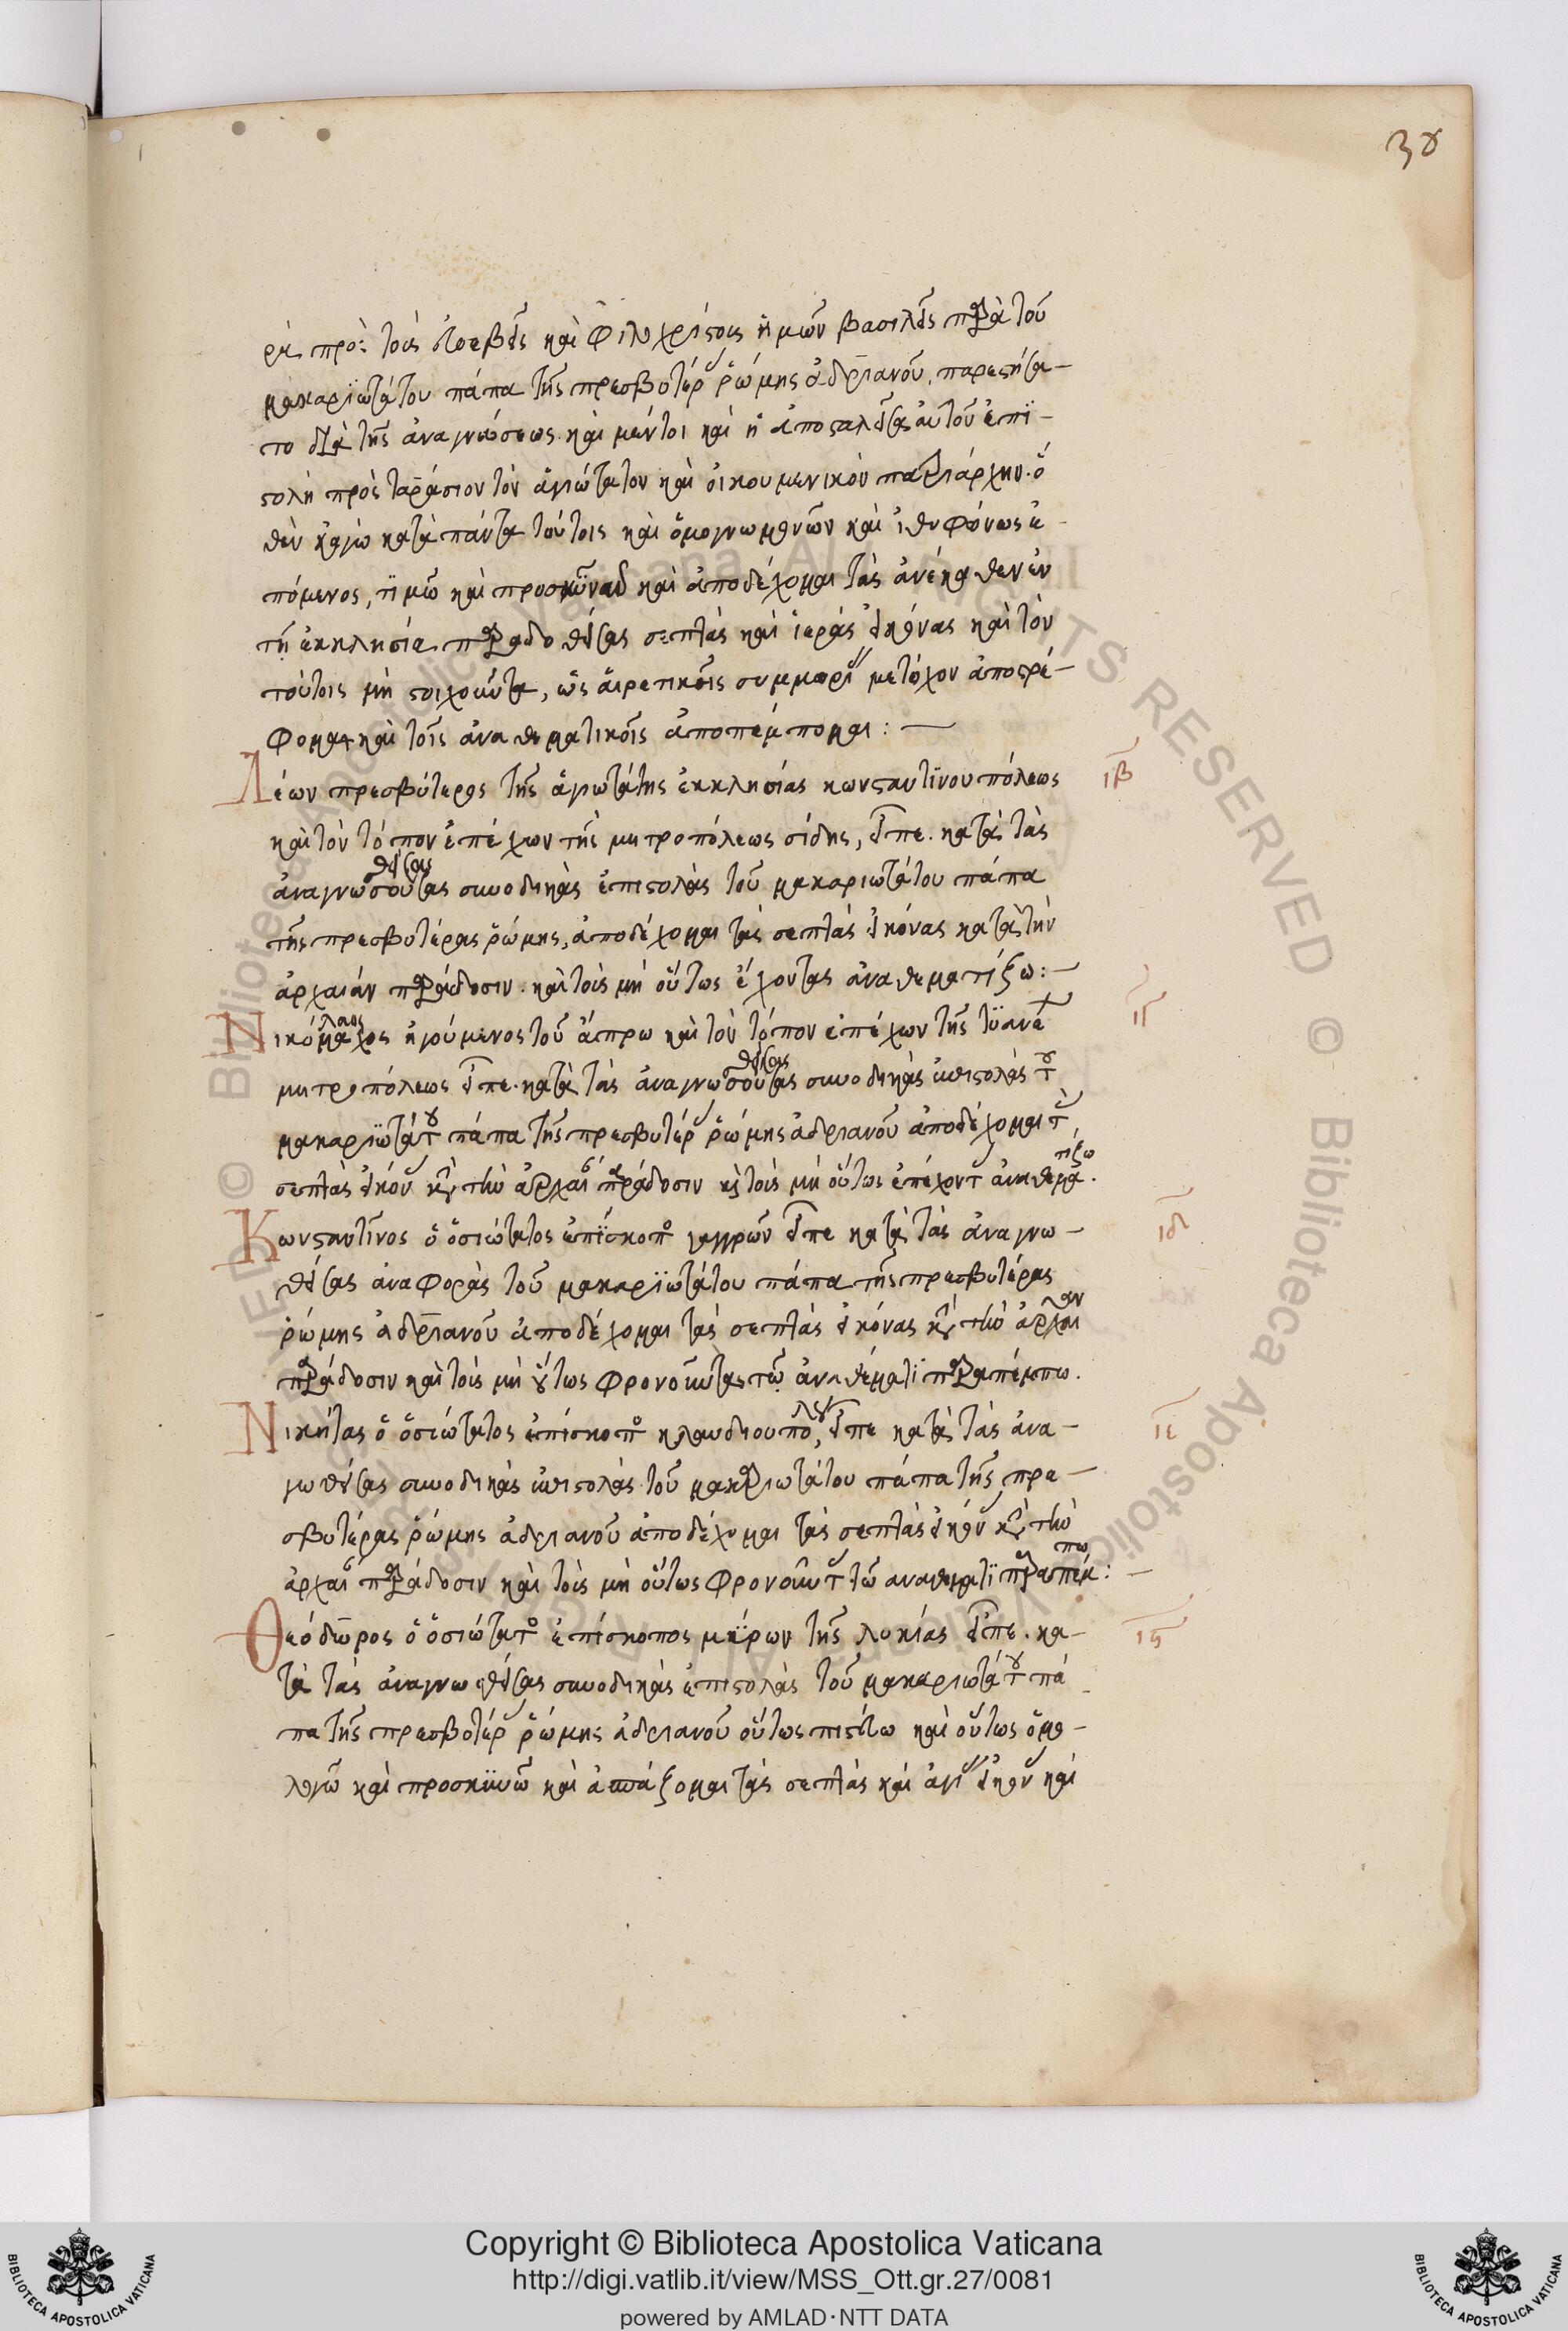 38
ρὰ πρὸς τοὺς εὐσεβεῖς καὶ φιλοχρίστους ἡμῶν βασιλεῖς παρὰ τοῦ
μακαριωτάτου πάπα τῆς πρεσβυτέρας ῥώμης ἀδριανοῦ, παρεστήσα-
το διὰ τῆς ἀναγνώσεως. καὶ μέντοι καὶ ἡ ἀποσταλεῖσα αὐτοῦ ἐπι-
στολὴ πρὸς ταράσιον τὸν ἁγιώτατον καὶ οἰκουμενικὸν πατριάρχην. ὅ
θεν κἀγὼ κατὰ πάντα τούτοις καὶ ὁμογνωμονῶν καὶ ἑ
πόμενος, τιμῶ καὶ προσκυνῶ καὶ ἀποδέχομαι τὰς ἀνέκαθεν ἐν
τῇ ἐκκλησία παραδοθείσας σεπτὰς καὶ ἱερὰς εἰκόνας καὶ τὸν
τούτοις μὴ στοιχοῦντα, ὡς αἱρετικῆς συμμορίας μέτοχον ἀποστρέ-
φομαι καὶ τοῖς ἀναθεματικοῖς ἀποπέμπομαι: —
Λέων πρεσβύτερος τῆς ἁγιωτάτης ἐκκλησίας κωνσταντίνουπόλεως
ιβ
καὶ τὸν τόπον ἐπέχων τῆς μητροπόλεως σίδης, εἶπε. κατὰ τὰς
θείσας
ἀναγνωσούσας συνοδικὰς ἐπιστολὰς τοῦ μακαριωτάτου πάπα
τῆς πρεσβυτέρας ῥώμης, ἀποδέχομαι τὰς σεπτὰς εἰκόνας κατὰ τὴν
ἀρχαίαν παράδοσιν. καὶ τοὺς μὴ οὕτως ἔχοντας ἀναθεματίζω: —
λαος
Νικόμαχος ἡγούμενος τοῦ ἄπρω καὶ τὸν τόπον ἐπέχων τῆς τυανέων
ιγ
θείσας
μητροπόλεως εἶπε. κατὰ τὰς ἀναγνωσούσας συνοδικὰς ἐπιστολὰς τοῦ
μακαριωτάτου πάπα τῆς πρεσβυτέρας ῥώμης ἀδριανοῦ ἀποδέχομαι τὰς
σεπτὰς εἰκόνας κατὰ τὴν ἀρχαίαν παράδοσιν καὶ τοὺς μὴ οὕτως ἐπέχοντας ἀναθεματίζω.
Κωνσταντῖνος ὁ ὁσιώτατος ἐπίσκοπος γαγγρῶν εἶπε κατὰ τὰς ἀναγνω-
ιδ
θείσας ἀναφορὰς τοῦ μακαριωτάτου πάπα τῆς πρεσβυτέρας
ῥώμης ἀδριανοῦ ἀποδέχομαι τὰς σεπτὰς εἰκόνας κατὰ τὴν ἀρχαίαν
παράδοσιν καὶ τοὺς μὴ οὕτως φρονοῦντας τῷ ἀναθέματι παραπέμπω.
Νικήτας ὁ ὁσιώτατος ἐπίσκοπος κλαυδιουπόλεως, εἶπε κατὰ τὰς ἀνα-
ιε
γνωθείσας συνοδικὰς ἐπιστολὰς τοῦ μακαριωτάτου πάπα τῆς πρε-
σβυτέρας ῥώμης ἀδριανοῦ ἀποδέχομαι τὰς σεπτὰς εἰκόνας κατὰ τὴν
ἀρχαίαν παράδοσιν καὶ τοὺς μὴ οὕτως φρονοῦντας τῶ αναθεματι παραπέμπω: —
Θεόδωρος ὁ ὁσιώτατος ἐπίσκοπος μύρων τῆς λυκίας εἶπε. κα-
ις
τὰ τὰς ἀναγνωσθείσας συνοδικὰς ἐπιστολὰς τοῦ μακαριωτάτου πά
πα τῆς πρεσβυτέρας ῥώμης ἀδριανοῦ οὕτως πιστεύω καὶ οὕτως ὁμο-
λογῶ καὶ προσκυνῶ καὶ ἀσπάζομαι τὰς σεπτὰς καὶ ἁγίας εἰκόνας καὶ
Copyright © Biblioteca Apostolica Vaticana
http://digi.vatlib.it/view/MSS_Ott.gr.27/0081
powered by AMLAD·NTT DATA